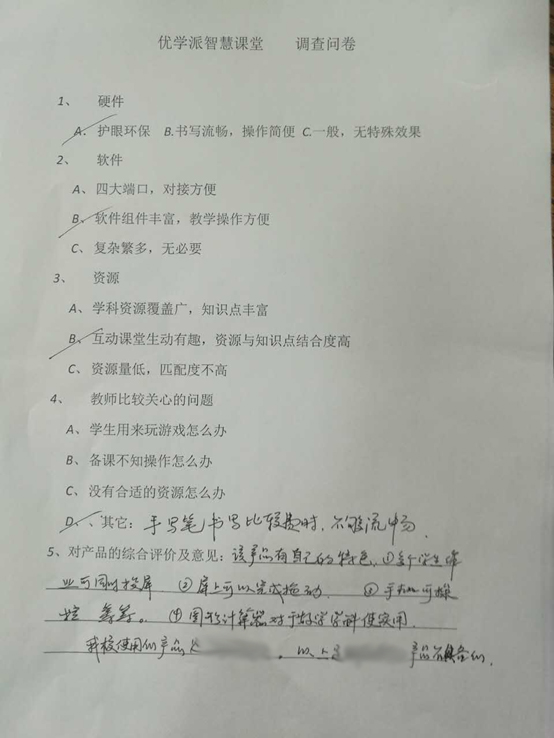 优学派智慧课堂 调查问卷
1、 硬件
A. 护眼环保 B.书写流畅，操作简便 C.一般，无特殊效果
2、 软件
A、四大端口，对接方便
B、软件组件丰富，教学操作方便
C、复杂繁多，无必要
3、 资源
A、学科资源覆盖广，知识点丰富
B、互动课堂生动有趣，资源与知识点结合度高
C、资源量低，匹配度不高
4、 教师比较关心的问题
A、学生用来玩游戏怎么办
B、备课不知操作怎么办
C、没有合适的资源怎么办
D、、其它：手写笔书写比较费时，不够流畅。
5、对产品的综合评价及意见：该产品有自己的特色，①多个学生作
业可同时投屏 ②屏上可以完成拖动． ③手机可操
控 等等。 ④图形计算器对于数学学科使实用．
我校使用的产品 ，以上 产品不具备的．